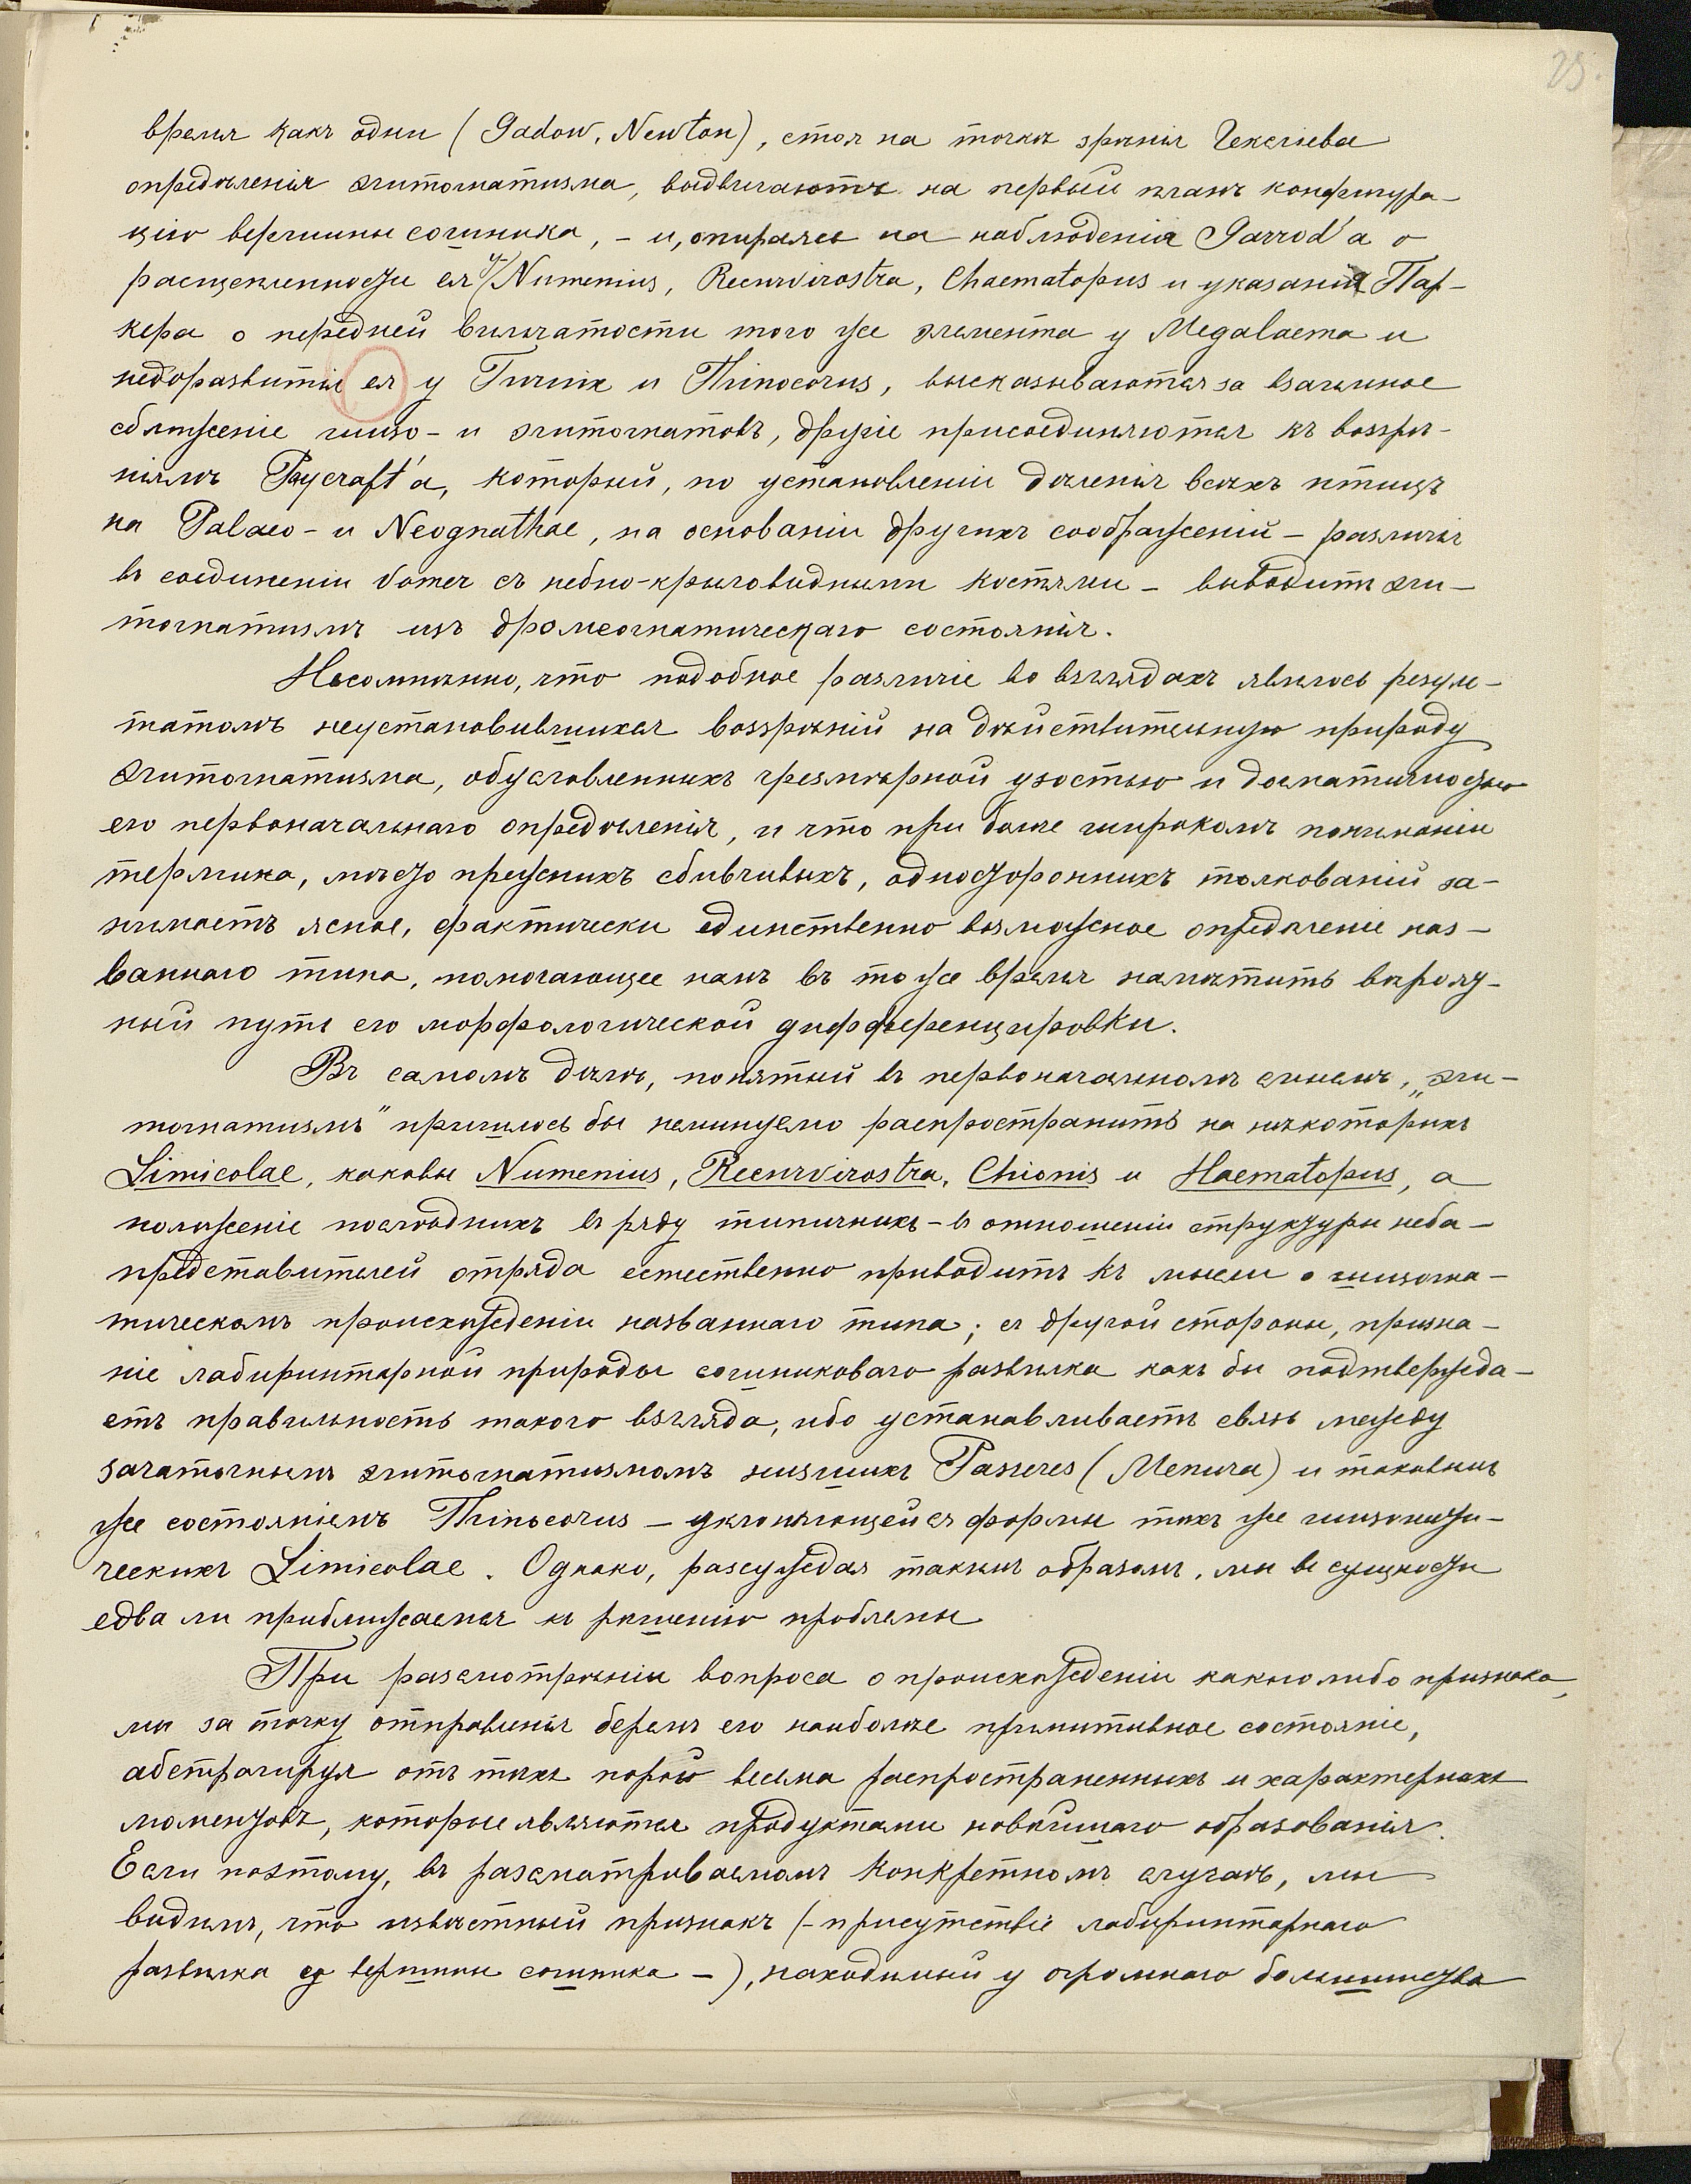 25.
время какъ одни (Gadow, Newton), стоя на точкѣ зрѣнія Гекслиева
опредѣленія эгитогнатизма, выдвигаютъ на первый планъ конфигура-
цію вершины сошника, – и, опираясь на наблюденія Garrod'а о
расщепленности ея у Numenius, Recurvirostra, Chaematopus и указанія Пар-
кера о передней вильчатости того же элемента у Megalaema и
недоразвитіи ея у Turnix и Thinocorus, высказываются за взаимное
сближеніе шизо- и эгитогнатовъ, другіе присоединяются къ воззрѣ-
ніямъ Pycraft'а, который, по установленіи дѣленія всѣхъ птицъ
на Palaeo- и Neognathae, на основаніи другихъ соображеній – различія
въ соединеніи vomer съ небно-крыловидными костями – выводитъ эги-
тогнатизмъ изъ дромеогнатическаго состоянія.
Несомнѣнно, что подобное различіе во взглядахъ явилось резуль-
татомъ неустановившихся воззрѣній на дѣйствительную природу
эгитогнатизма, обусловленныхъ чрезмѣрной узостью и догматичностью
его первоначальнаго опредѣленія, и что при болѣе широкомъ пониманіи
термина, мѣсто прежнихъ сбивчивыхъ, одностороннихъ толкованій за-
нимаетъ ясное, фактически единственно возможное опредѣленіе наз-
ваннаго типа, помогающее намъ въ то же время намѣтить вѣроят-
ный путь его морфологической дифференцировки.
Въ самомъ дѣлѣ, понятый въ первоначальномъ смыслѣ, „эги-
тогнатизмъ" пришлось бы неминуемо распространить на нѣкоторыхъ
Limicolae, каковы Numenius, Recurvirostra, Chionis и Haematopus, а
положеніе послѣднихъ въ ряду типичныхъ – въ отношеніи структуры неба –
представителей отряда естественно приводитъ къ мысли о шизогна-
тическомъ происхожденіи названнаго типа; съ другой стороны, призна-
ніе лабиринтарной природы сошниковаго развилка какъ бы подтвержда-
етъ правильность такого взгляда, ибо устанавливаетъ связь между
зачаточнымъ эгитогнатизмомъ низшихъ Passeres (Menura) и таковымъ
же состояніемъ Thinocorus – уклоняющейся формы тѣхъ же
ческихъ Limicolae. Однако, разсуждая такимъ образомъ, мы въ сущности
едва ли приближаемся къ рѣшенію проблемы
При разсмотрѣніи вопроса о происхожденіи какого либо признака,
мы за точку отправленія беремъ его наиболѣе примитивное состояніе,
абстрагируя отъ тѣхъ порою весьма распространенныхъ и характерныхъ
моментовъ, которые являются продуктами новѣйшаго образованія.
Если поэтому, въ разсматриваемомъ конкретномъ случаѣ, мы
видимъ, что извѣстный признакъ (– присутствіе лабиринтарнаго
развилка вершины сошника –), находимый у огромнаго большинства